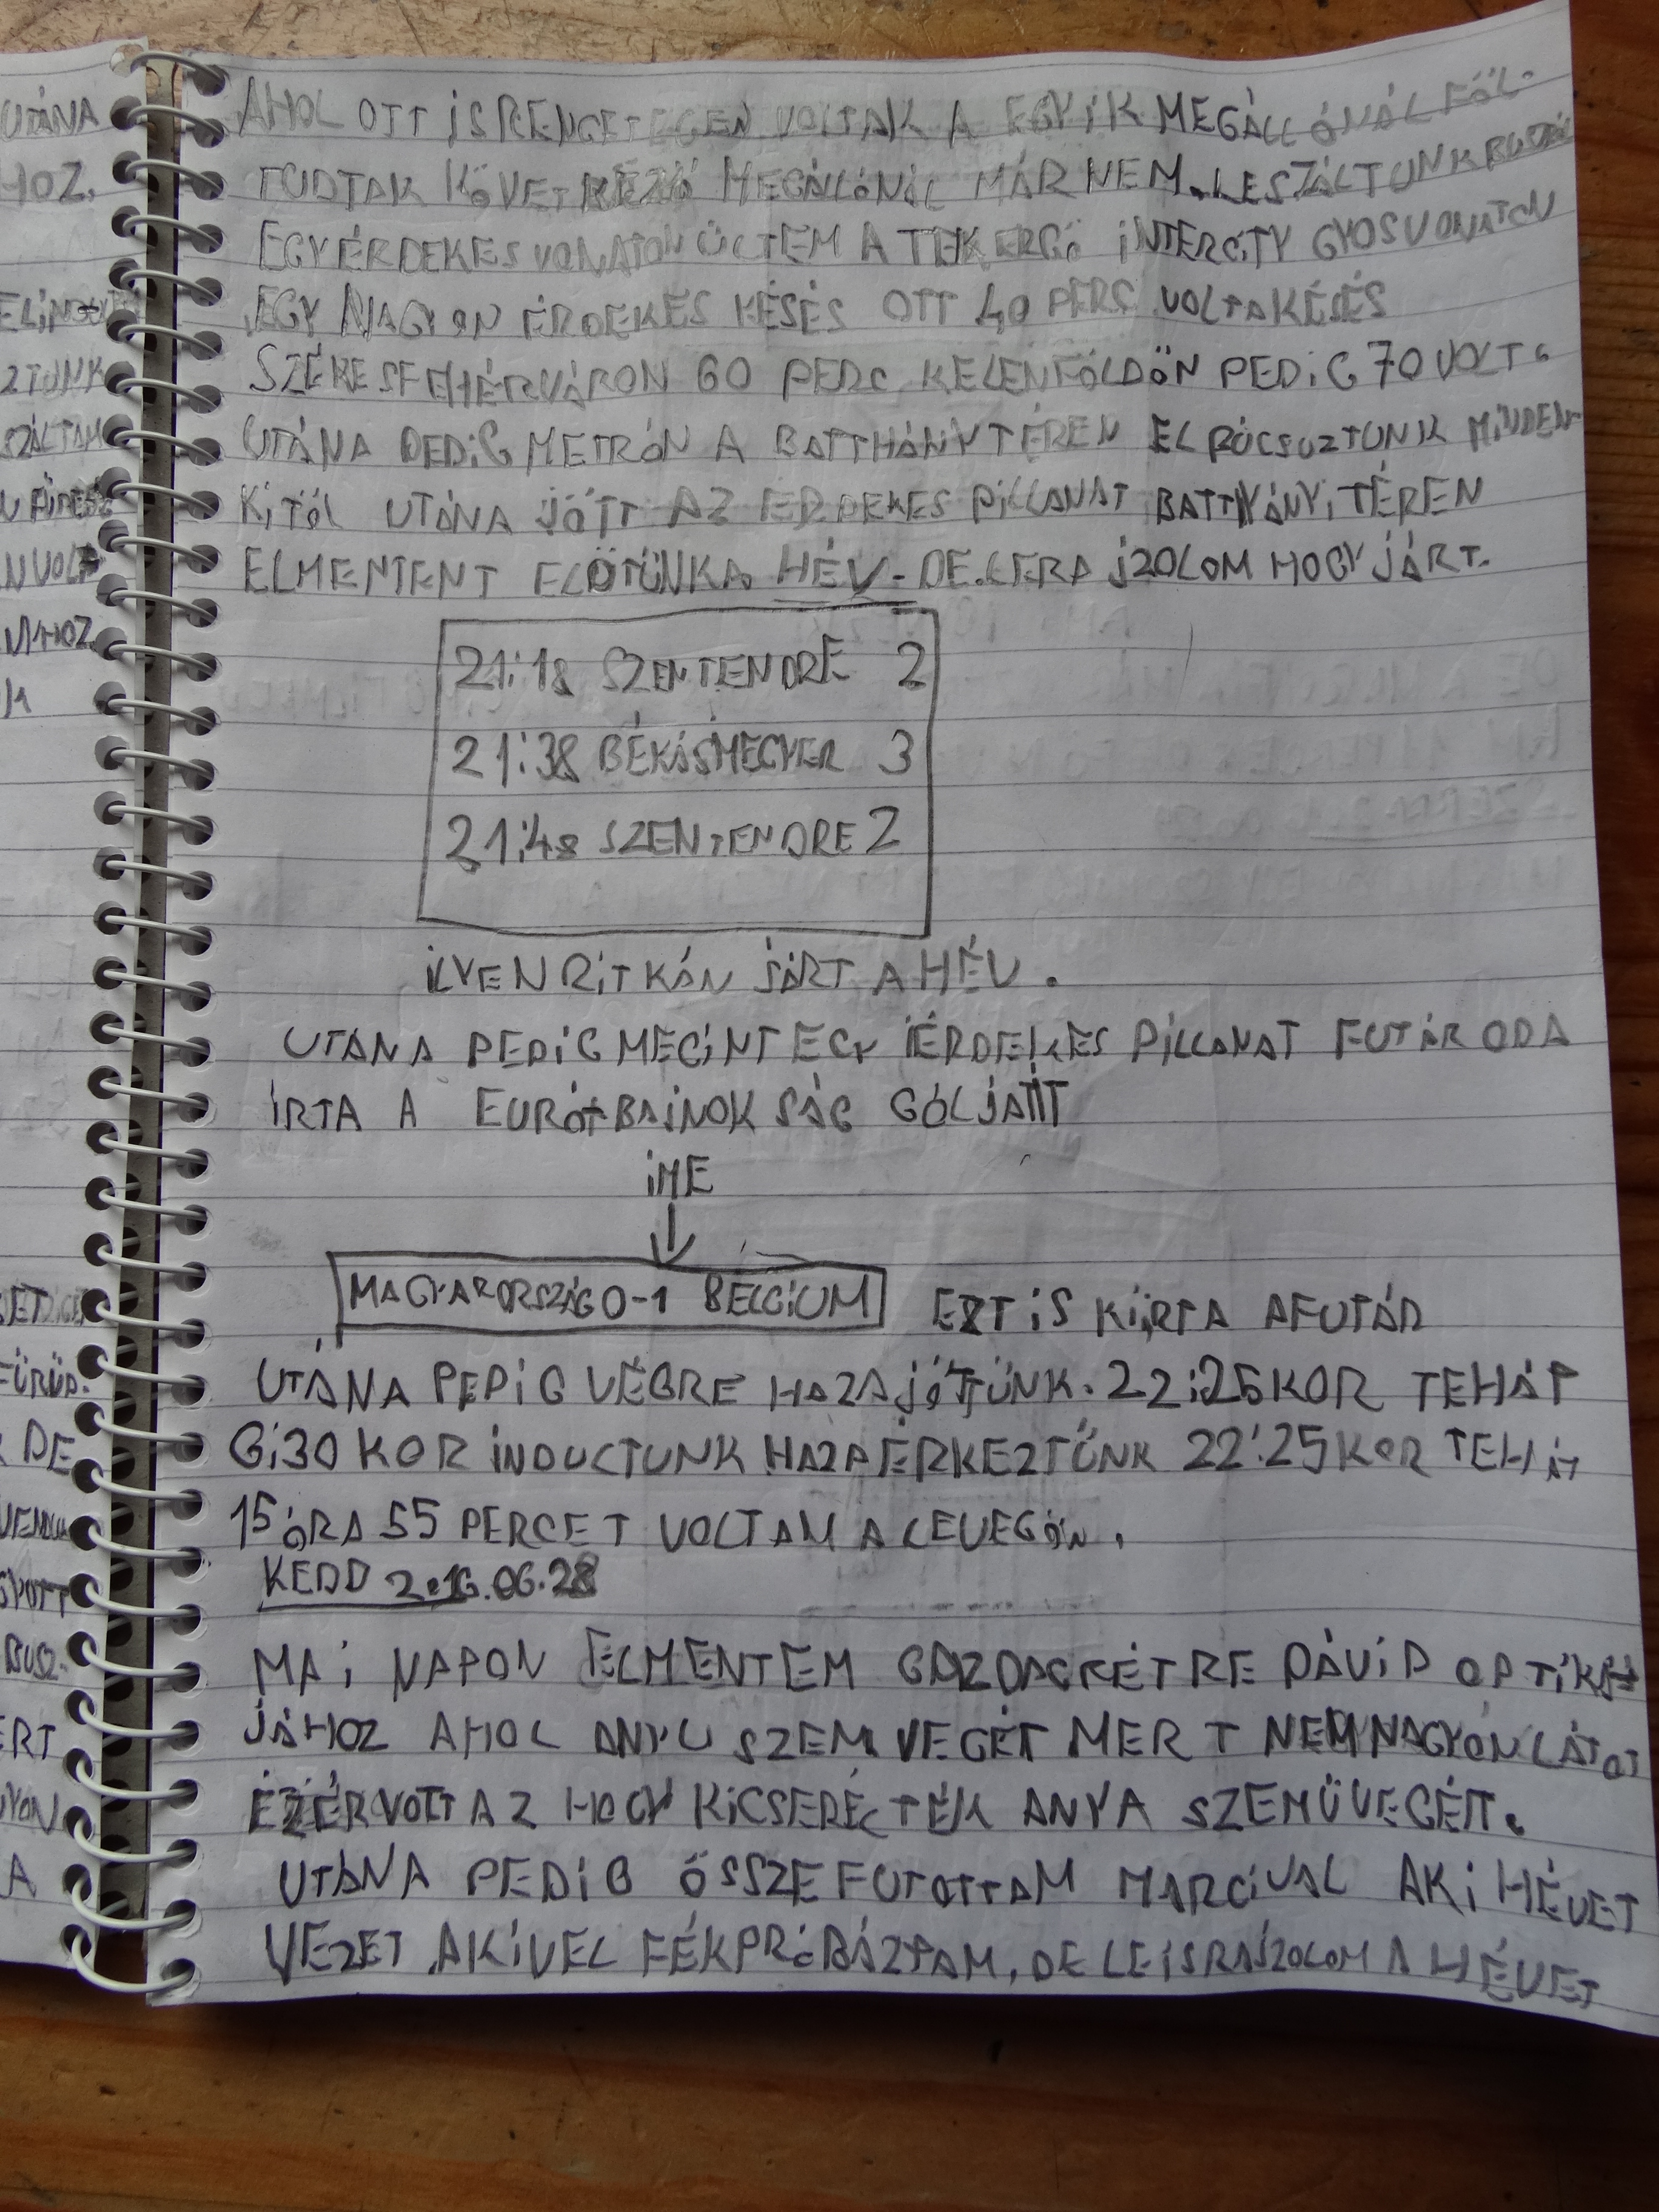 AHOL OTT IS RENGETEGEN VOLTAK A EGYIK MEGÁLLÓNÁL FÖL-
TUDTAK KÖVETKEZŐ MEGÁLLÓNÁL MÁR NEM. LESZÁLTUNK
EGY ÉRDEKES VONATON ÜLTEM A TEKERGŐ INTERCITY GYOSVONATON
EGY NAGYON ÉRDEKES KÉSÉS OTT 40 PERC VOLT A KÉSÉS
SZÉKESFEHÉRVÁRON 60 PERC KELENFÖLDÖN PEDIG 70 VOLT.
UTÁNA PEDIG METRÓN A BATTHÁNY TÉREN ELBÚCSUZTUNK MINDEN-
KITŐL UTÁNA JÖTT AZ ÉRDEKES PILLANAT BATTYÁNYI TÉREN
ELMENTENT ELŐTÜNK A HÉV- DE LERAJZOLOM HOGY JÁRT.
21:18 SZENTENDRE 2
21:38 BÉKÁSMEGYER 3
21:48 SZENTENDRE 2
ILYEN RITKÁN JÁRT A HÉV.
UTANA PEDIG MEGINT EGY ÉRDEKES PILLANAT FUTÁR ODA
ÍRTA A EURÓTBAJNOKSÁG GÓLJAIT
IME
MAGYARORSZÁG 0-1 BELGIUM EZT IS KIÍRTA A FUTÁR
UTÁNA PEDIG VÉGRE HAZAJÖTTÜNK. 22:25 KOR TEHÁT
6:30 KOR INDULTUNK HAZAÉRKEZTÜNK 22:25 KOR TEHÁT
15 ÓRA 55 PERCET VOLTAM A LEVEGŐN.
KEDD 2016.06.28
MAI NAPON ELMENTEM GAZDAGRÉTRE DÁVID OPTIKÁ-
JÁHOZ AHOL ANYU SZEMVEGÉT MERT NEM NAGYON LÁTOT
EZÉR VOLT AZ HOGY KICSERÉLTÉK ANYA SZEMÜVEGÉT.
UTÁNA PEDIG ÖSSZEFUTOTTAM MARCIVAL AKI HÉVET
VEZET AKIVEL FÉKPRÓBÁZTAM, DE LE IS RAJZOLOM A HÉVET